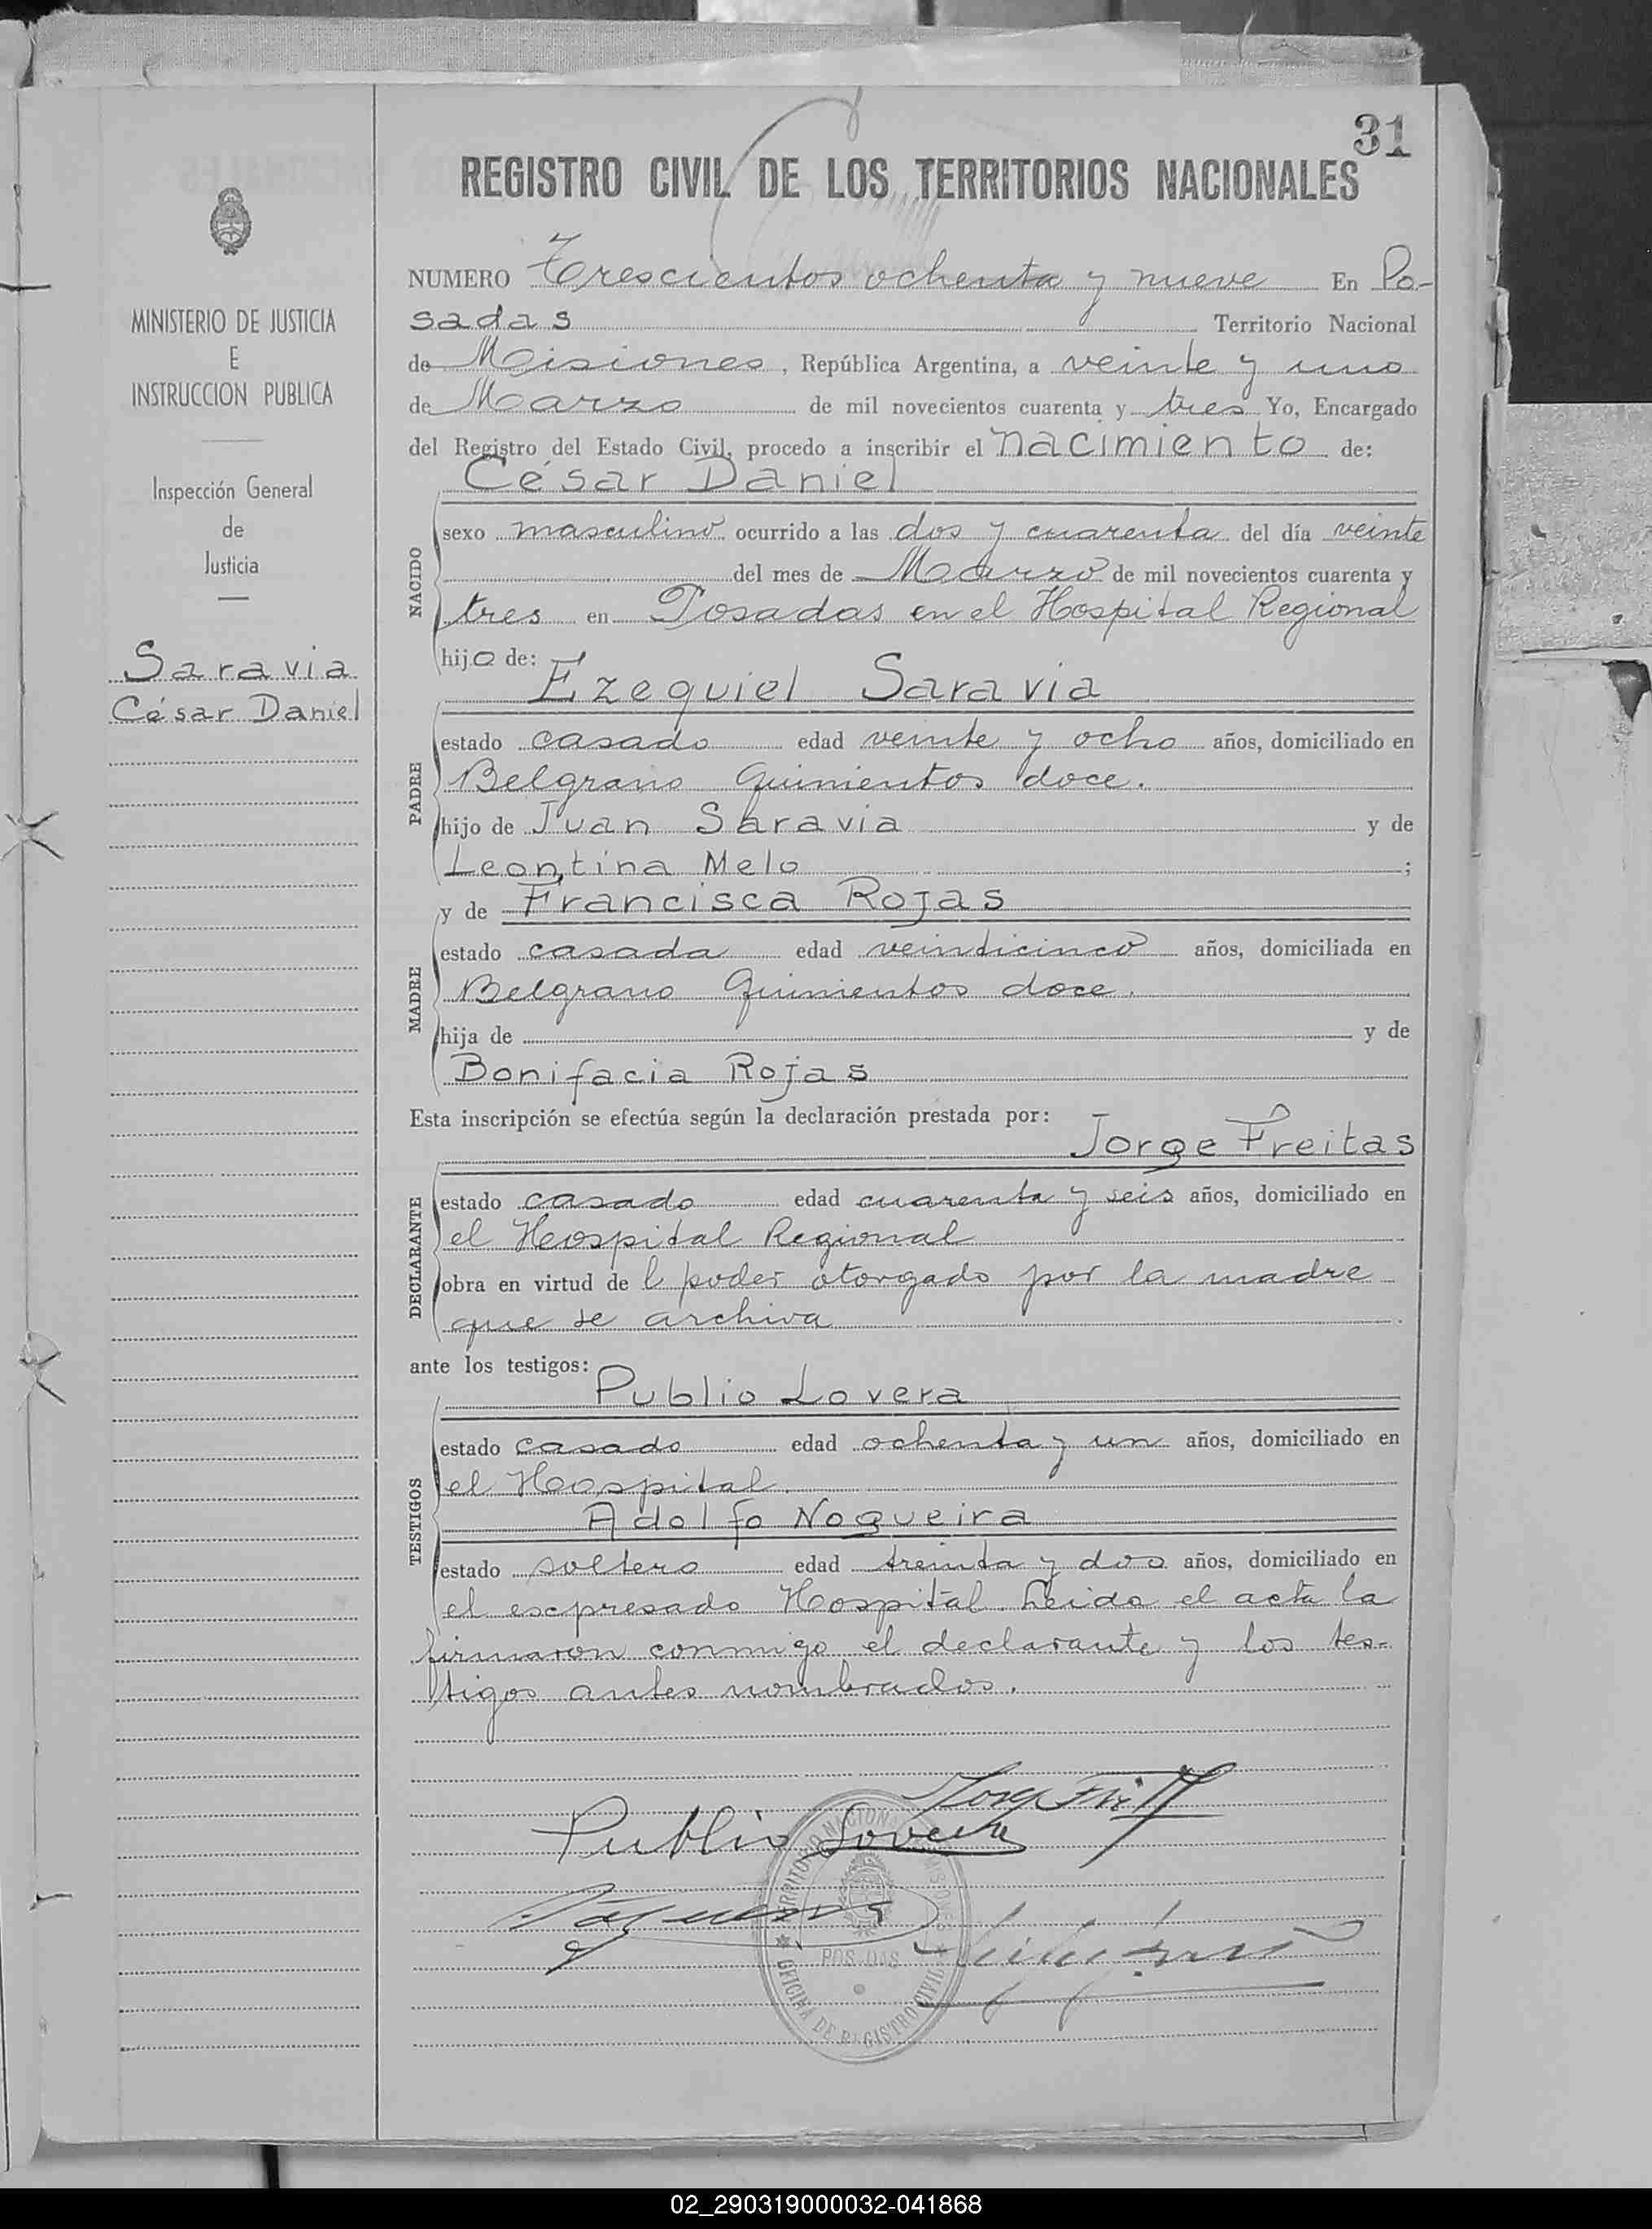 31
REGISTRO CIVIL DE LOS TERRITORIOS NACIONALES
MINISTERIO DE JUSTICIA
E
INSTRUCCION PUBLICA
Inspección General
de
Justicia
Saravia
César Daniel
NUMERO Trescientos ochenta y nueve En Po-
sadas Territorio Nacional
de Misiones, República Argentina, a veinte y uno
de Marzo de mil novecientos cuarenta y tres Yo, Encargado
del Registro del Estado Civil, procedo a inscribir el nacimiento de:
César Daniel
NACIDO
sexo masculino ocurrido a las dos y cuarenta del día veinte
del mes de Marzo de mil novecientos cuarenta y
tres en Posadas en el Hospital Regional
hijo de:
Ezequiel Saravia
PADRE
estado casado edad veinte y ocho años, domiciliado en
Belgrano Quinientos doce.
hijo de Juan Saravia y de
Leontina Melo ;
y de Francisca Rojas
MADRE
estado casada edad veinticinco años, domiciliada en
Belgrano Quinientos doce.
hija de y de
Bonifacia Rojas
Esta inscripción se efectúa según la declaración prestada por:
Jorge Freitas
DECLARANTE
estado casado edad cuarenta y seis años, domiciliado en
el Hospital Regional
obra en virtud de l poder otorgado por la madre
que se archiva
ante los testigos:
Publio Lovera
TESTIGOS
estado casado edad ochenta y un años, domiciliado en
el Hospital.
Adolfo Nogueira
estado soltero edad treinta y dos años, domiciliado en
el expresado Hospital. Leida el acta la
firmaron conmigo el declarante y los tes-
tigos antes nombrados.
Publio Lovera
POSADAS
OFICINA DE REGISTRO CIVIL
02_290319000032-041868